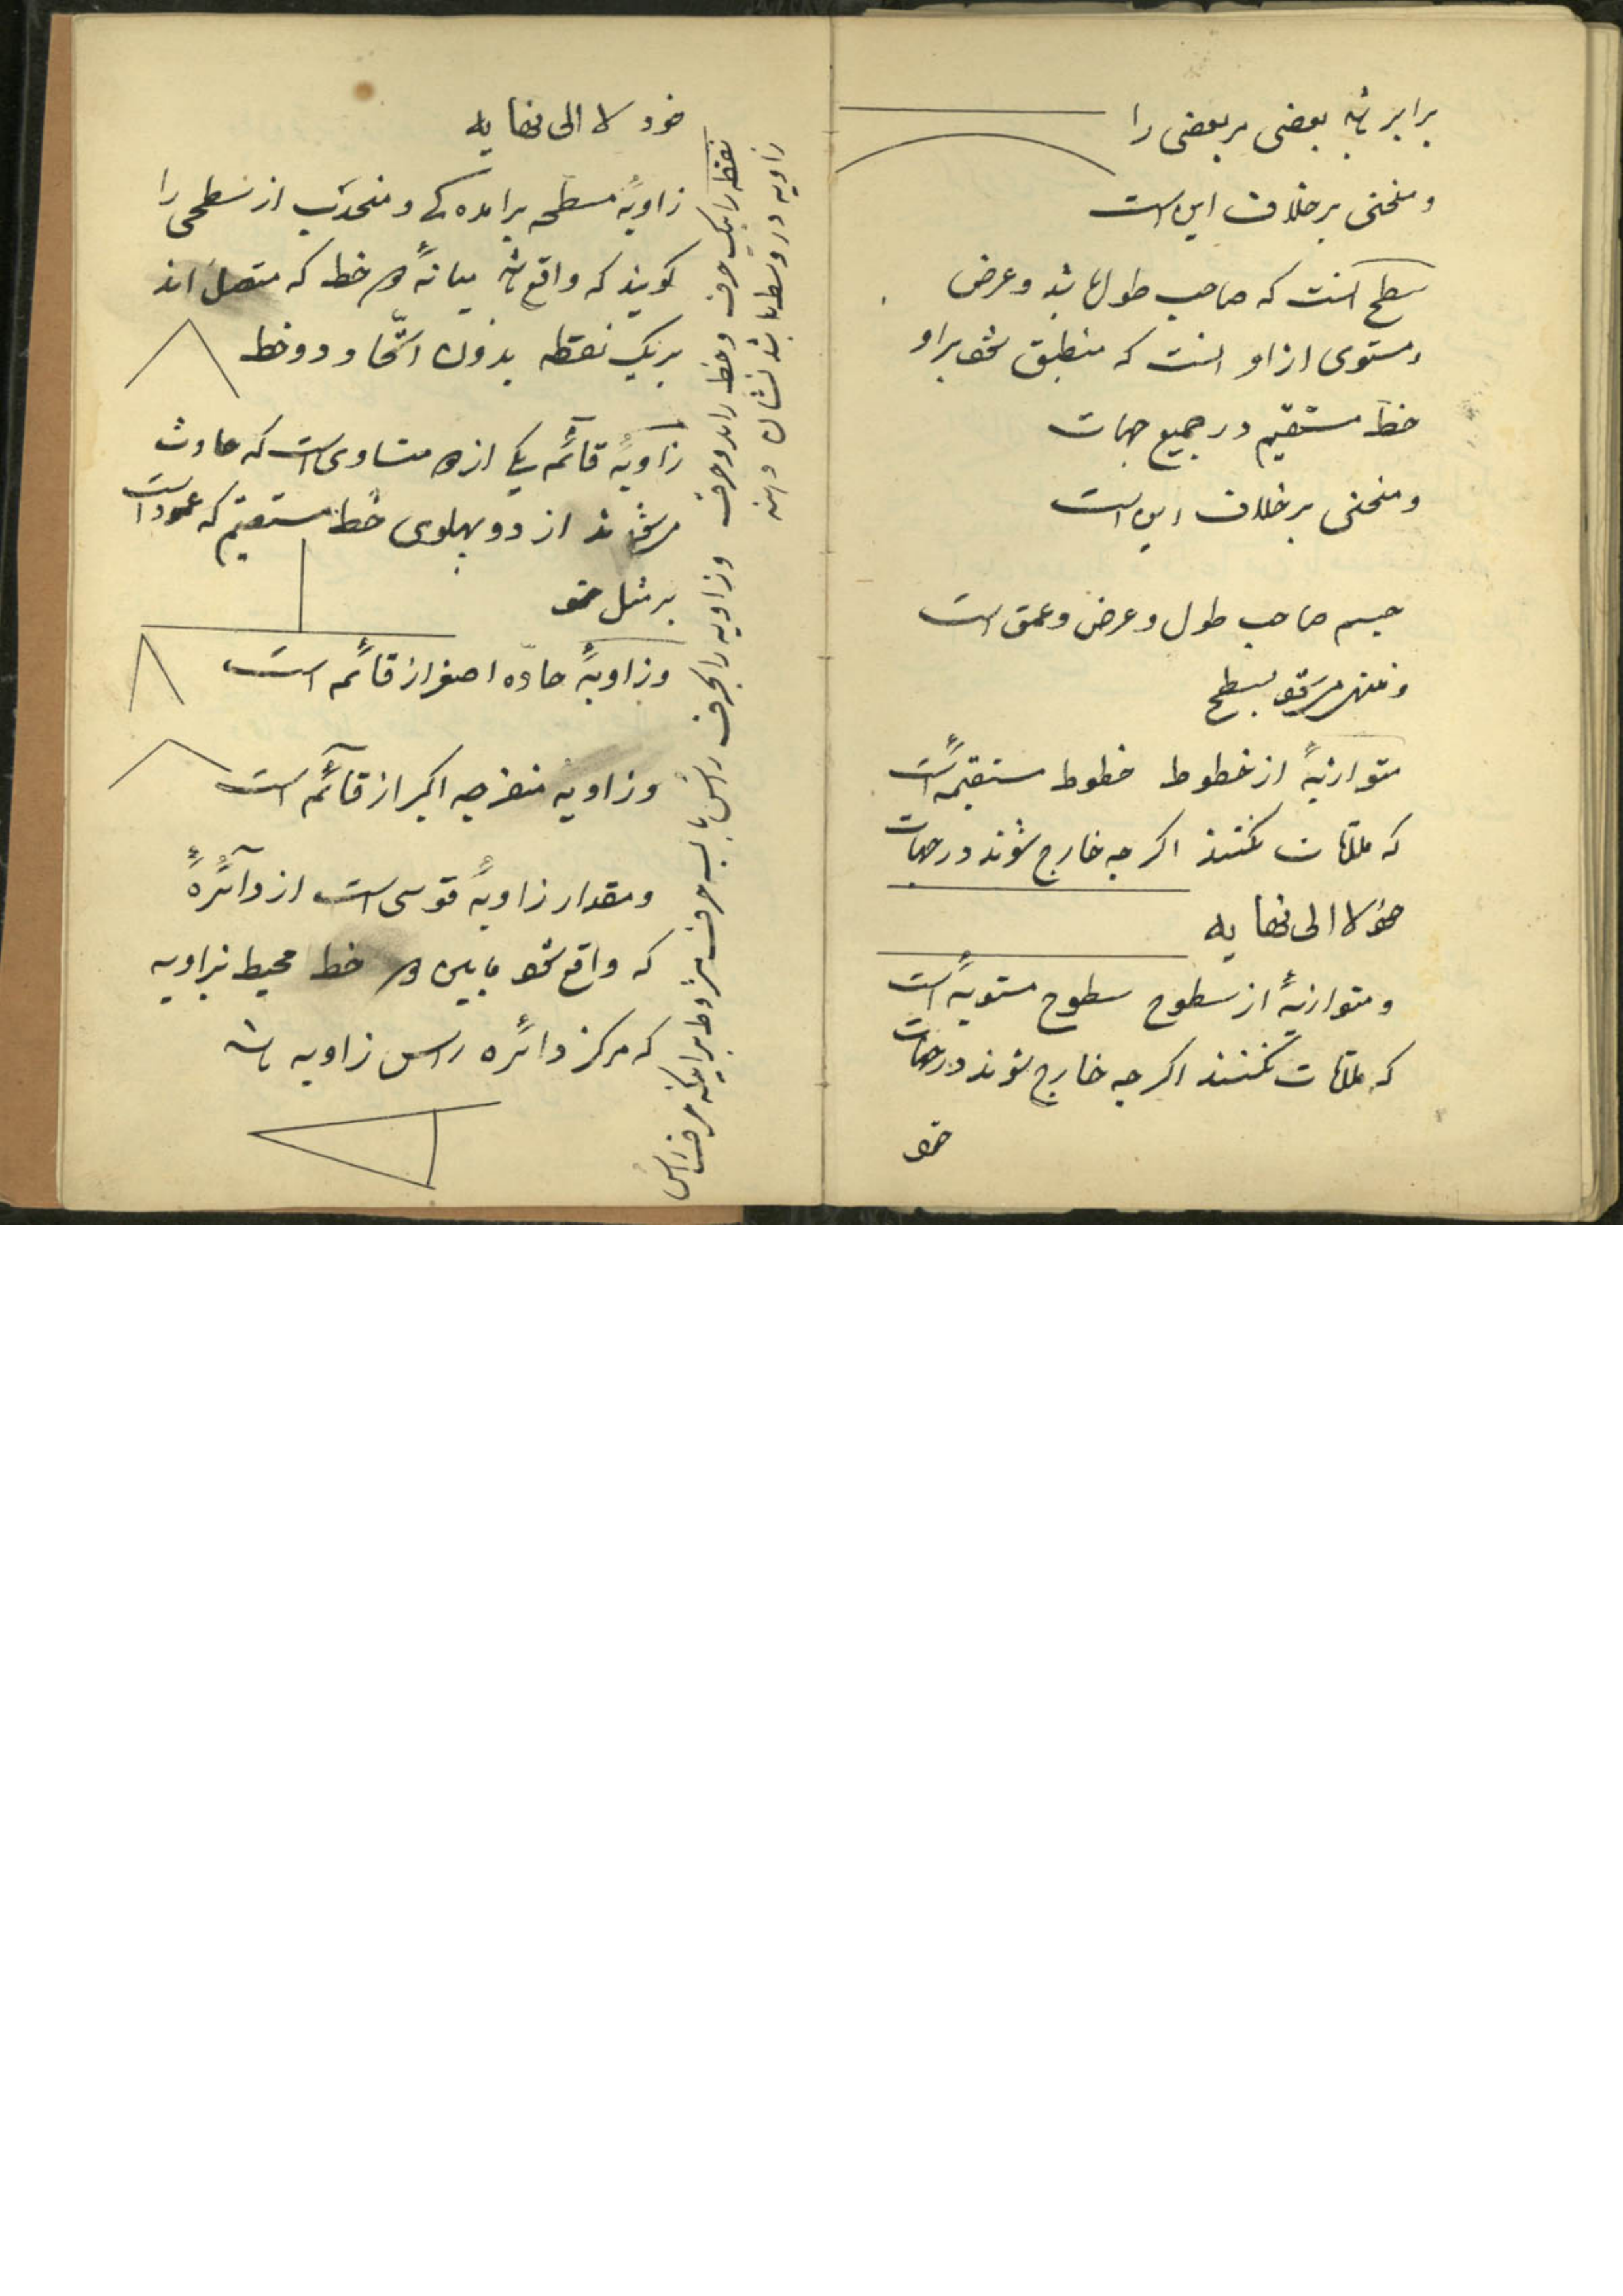 برابر باشد بعضی مر بعضی را
و منحنی برخلاف این است
سطح آنست که صاحب طول باشد و عرض
و مستوی از او آنست که منطبق شود بر او
خط مستقیم در جمیع جهات
و منحنی برخلاف این است
جسم صاحب طول و عرض و عمق است
و منتهی میشود بسطح
متوازیهٔ از خطوط خطوط مستقیمه است
که ملاقات نکنند اگر چه خارج شوند در جهات
خود لا الی نهایه
و متوازیهٔ از سطوح سطوح مستویهٔ است
که ملاقات نکنند اگر چه خارج شوند در جهات
خود
خود لا الی نهایه
زاویهٔ مسطحه برآمده کی و منحدب از سطحی را
گویند که واقع باشد میانهٔ دو خط که متصل اند
بر یک نقطه بدون اتّحاد دو خط
زاویهٔ قائمه یکی از دو متساوی است که حادث
میشوند از دو پهلوی خط مستقیم که عمود است
بر مثل خود
و زاویهٔ حادّه اصغر از قائمه است
و زاویه منفرجه اکبر از قائمه است
و مقدار زاویهٔ قوسی است از دائرهٔ
که واقع شود مابین دو خط محیط بزاویه
که مرکز دائره راس زاویه باشد
نقطه را بیک حرف و خط را بدو حرف و زاویه را بحرف راس یا بسه حرف مشروط بر اینکه حرف راس
زاویه در وسط باشد نشان دهند